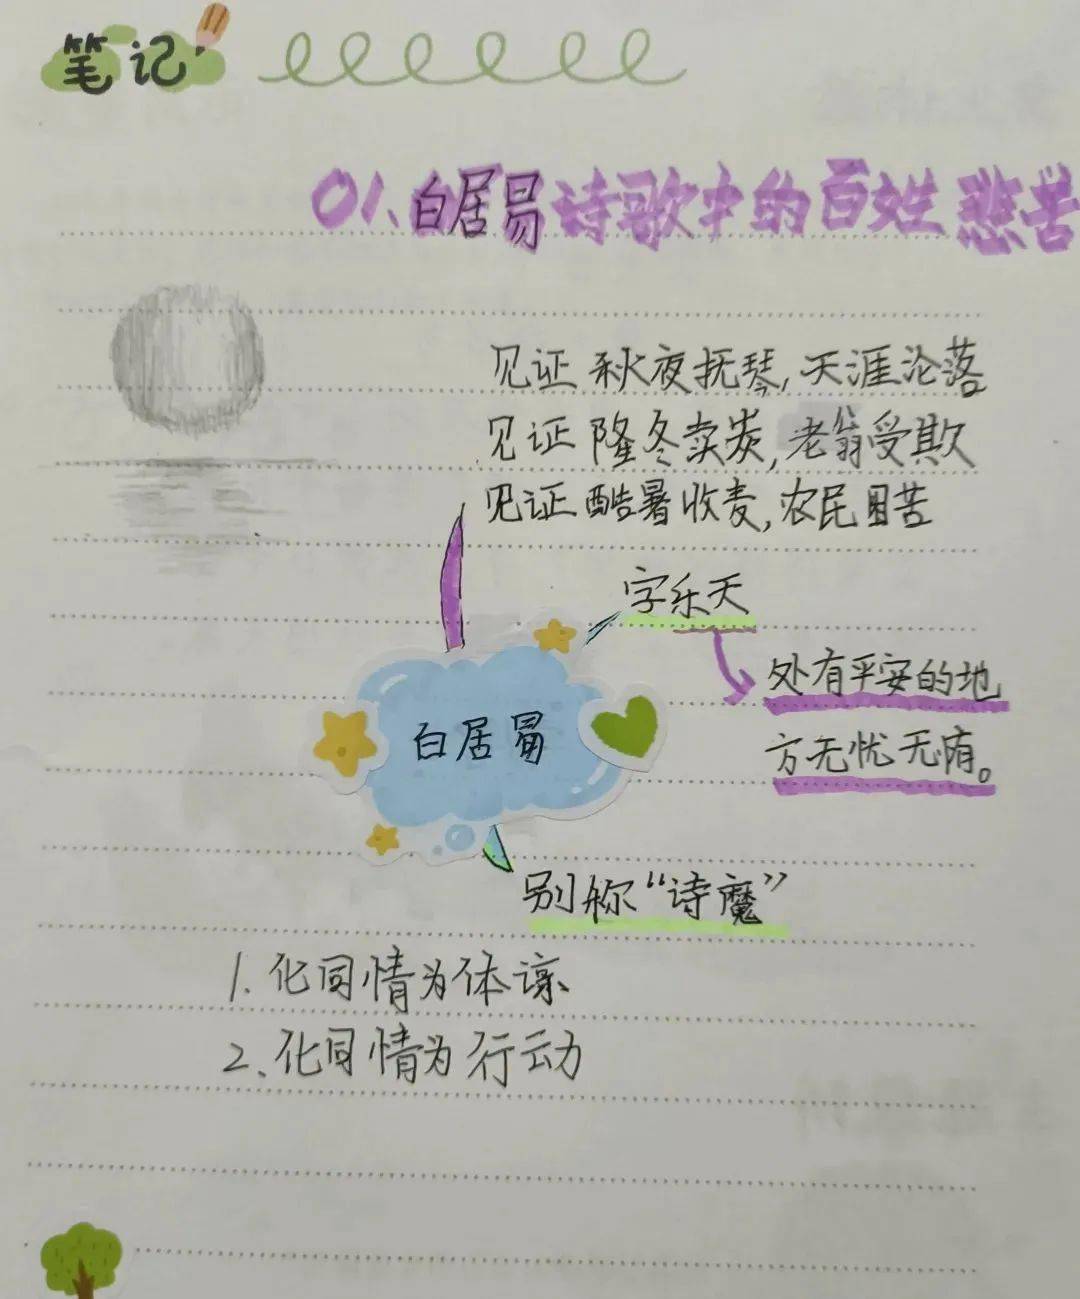 笔记
01、白居易诗歌中的百姓悲苦
见证 秋夜抚琴,天涯沦落
见证 隆冬卖炭,老翁受欺
见证 酷暑收麦,农民困苦
字乐天
处有平安的地
方无忧无虑。
白居易
别称“诗魔”
1.化同情为体谅、
2、化同情为行动